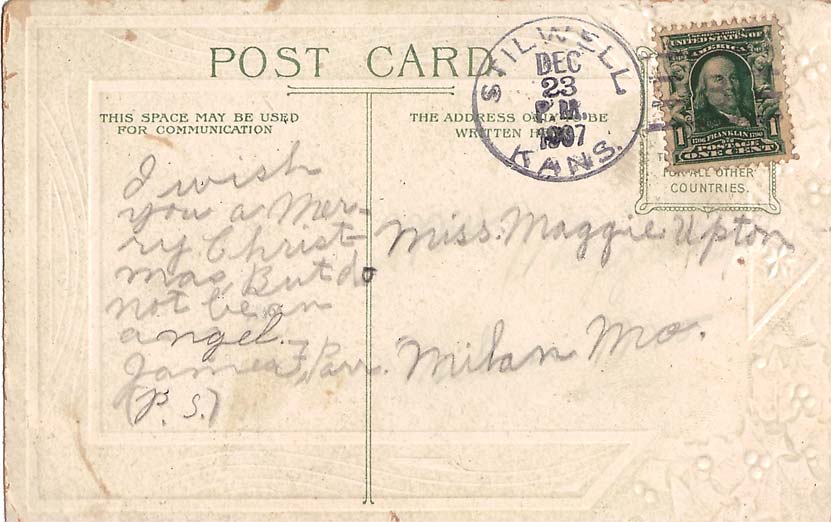 POST CARD
THIS SPACE MAY BE USED
FOR COMMUNICATION
THE ADDRESS ONLY TO BE
WRITTEN H
STILWELL
DEC
23
P.M.
1907
KANS.
SERIES 1902
UNITED STATES OF
AMERICA
1 1706 FRANKLIN 1790 1
POSTAGE
ONE CENT
FOR ALL OTHER
COUNTRIES.
I wish
you a Mer-
ry Christ-
mas, But do
not be an
angel.
James F. Parr.
(P. S.)
Miss. Maggie Upton
Milan Mo.